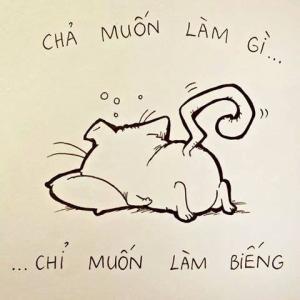 CHẢ MUỐN LÀM GÌ...
...CHỈ MUỐN LÀM BIẾNG